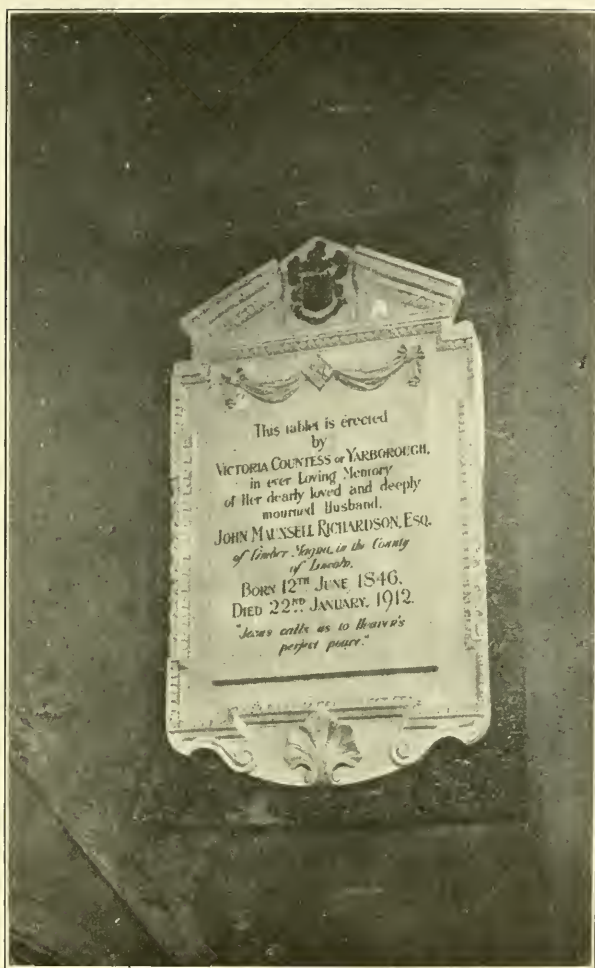 This tablet is erected
by
VICTORIA COUNTESS OF YARBOROUGH,
in ever Loving Memory
of Her dearly loved and deeply
mourned Husband,
JOHN MAUNSELL RICHARDSON, ESQ.
of Limber Magna, in the County
of Lincoln.
BORN 12TH JUNE 1846.
DIED 22ND JANUARY, 1912.
"Jesus calls us to Heaven's
perfect peace."